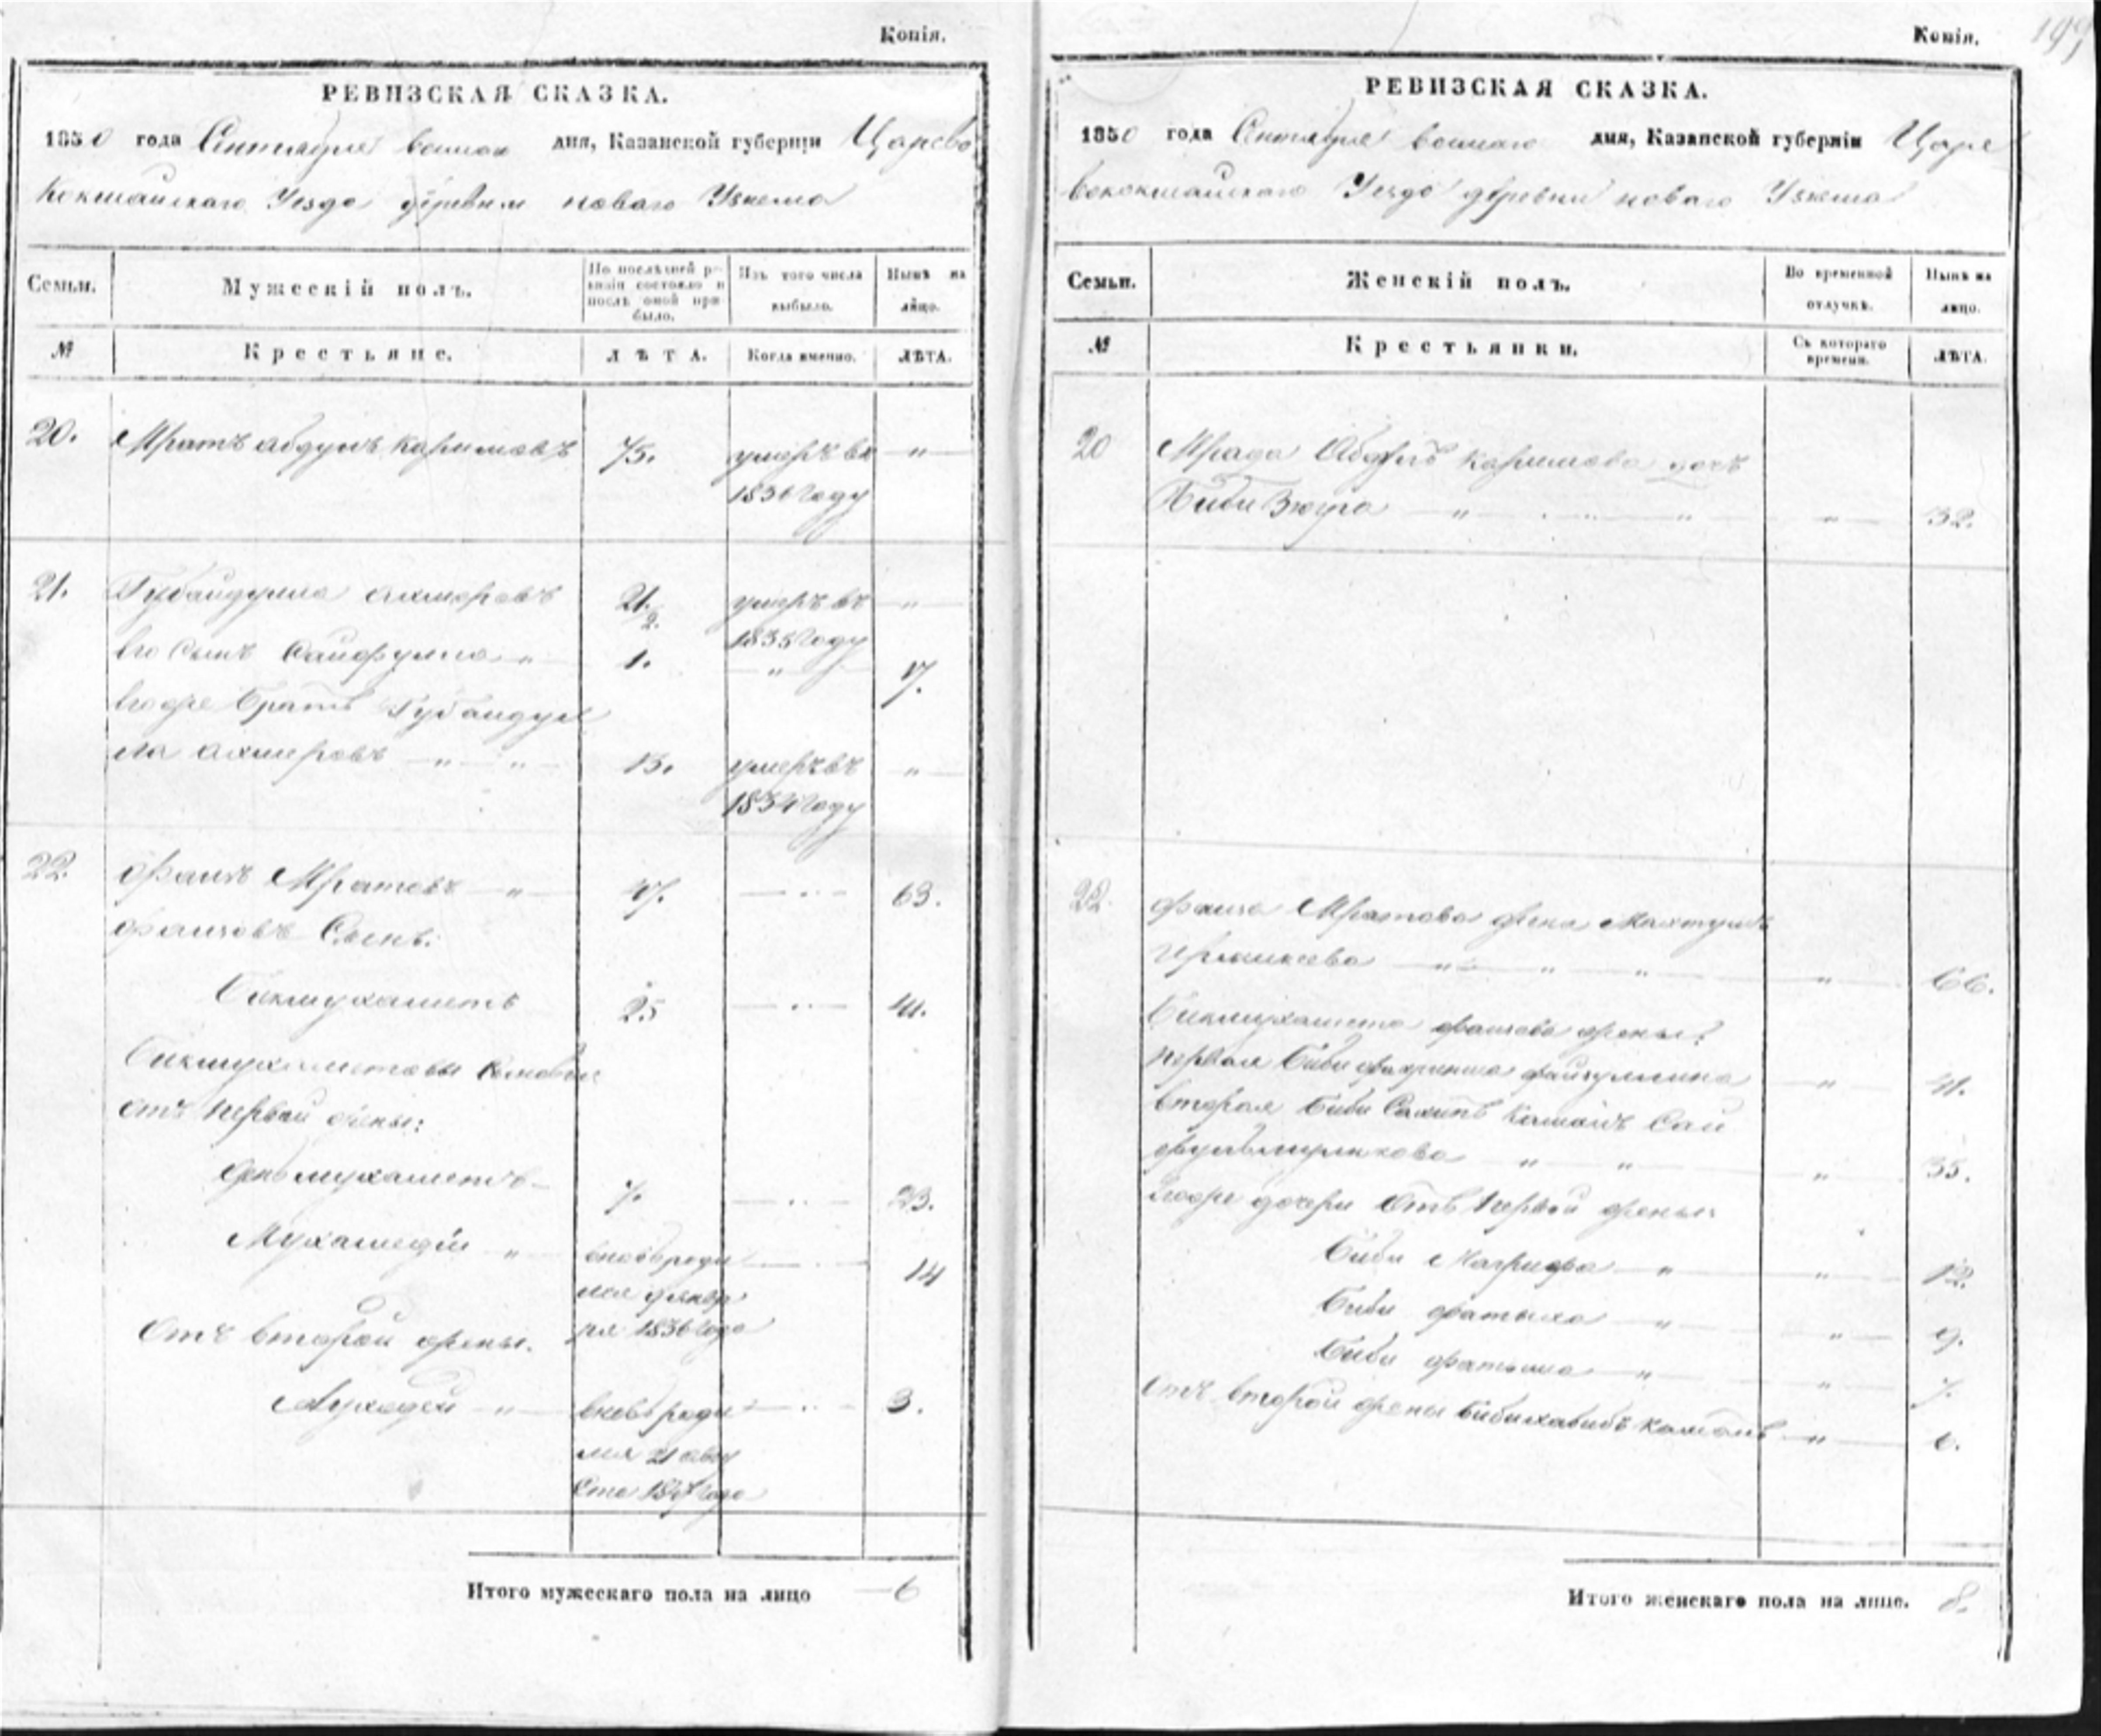 Копія.
РЕВИЗСКАЯ СКАЗКА.
1850 года Сентября дня, Казанской губерніи Царево
Кокшайскаго Уезда деревни новаго Узюма
Семьи.
Мужескій полъ.
По послѣдней ре-
визіи состояло и
послѣ оной при-
было.
Изъ того числа
выбыло.
Нынѣ на
лицо.
№
Крестьяне.
ЛѢТА.
Когда именно.
ЛѢТА.
20. Мратъ абдулъ Каримовъ 75. умеръ въ "
1836 году
21. Губайдулла Ахмеровъ 21. умеръ въ "
2.
1835 году
Его Сынъ Сайфулла " 1. " 17.
Егоже братъ Губайдул
ла ахмеровъ " " 13. умеръ въ "
1834 году
22. Фаизъ Мратовъ " 47. " 63.
Фаизовъ Сынъ:
Бикмухаметъ 25 " 41.
Бикмухаметовы Сыновья
отъ первой жены:
мухаметъ 7. " 23.
Мухамедій " вновьроди " 14
лся 9 янва
ря 1836 года
Отъ второй жены.
" вновь роди " 3.
лся 21 авгу
ста 1847 года
Итого мужескаго пола на лицо 6
Копія.
199
РЕВИЗСКАЯ СКАЗКА.
1850 года Сентября дня, Казанской губерніи Царе
вококшайскаго Уезда деревни новаго Узюма
Семьи.
Женскій полъ.
Во временной
отлучкѣ.
Нынѣ на
лицо.
№
Крестьянки.
Съ котораго
времени.
ЛѢТА.
20 Мрада Абдулъ Каримова дочь
Биби Зюгра " " " " 32.
22. Фаиза Мратова жена
" " " " 66.
Бикмухамета Фаизова жены:
первая Биби Файзуллина " 41.
вторая Биби Сахипъ Камалъ Сай
" " " 35.
Егоже дочери отъ первой жены:
Биби Магрифа " " 12.
Биби Фатыха " " 9.
Биби Фатыма " " 7.
Отъ второй жены Бибихабибъ Камалъ " 6.
Итого женскаго пола на лице. 8.